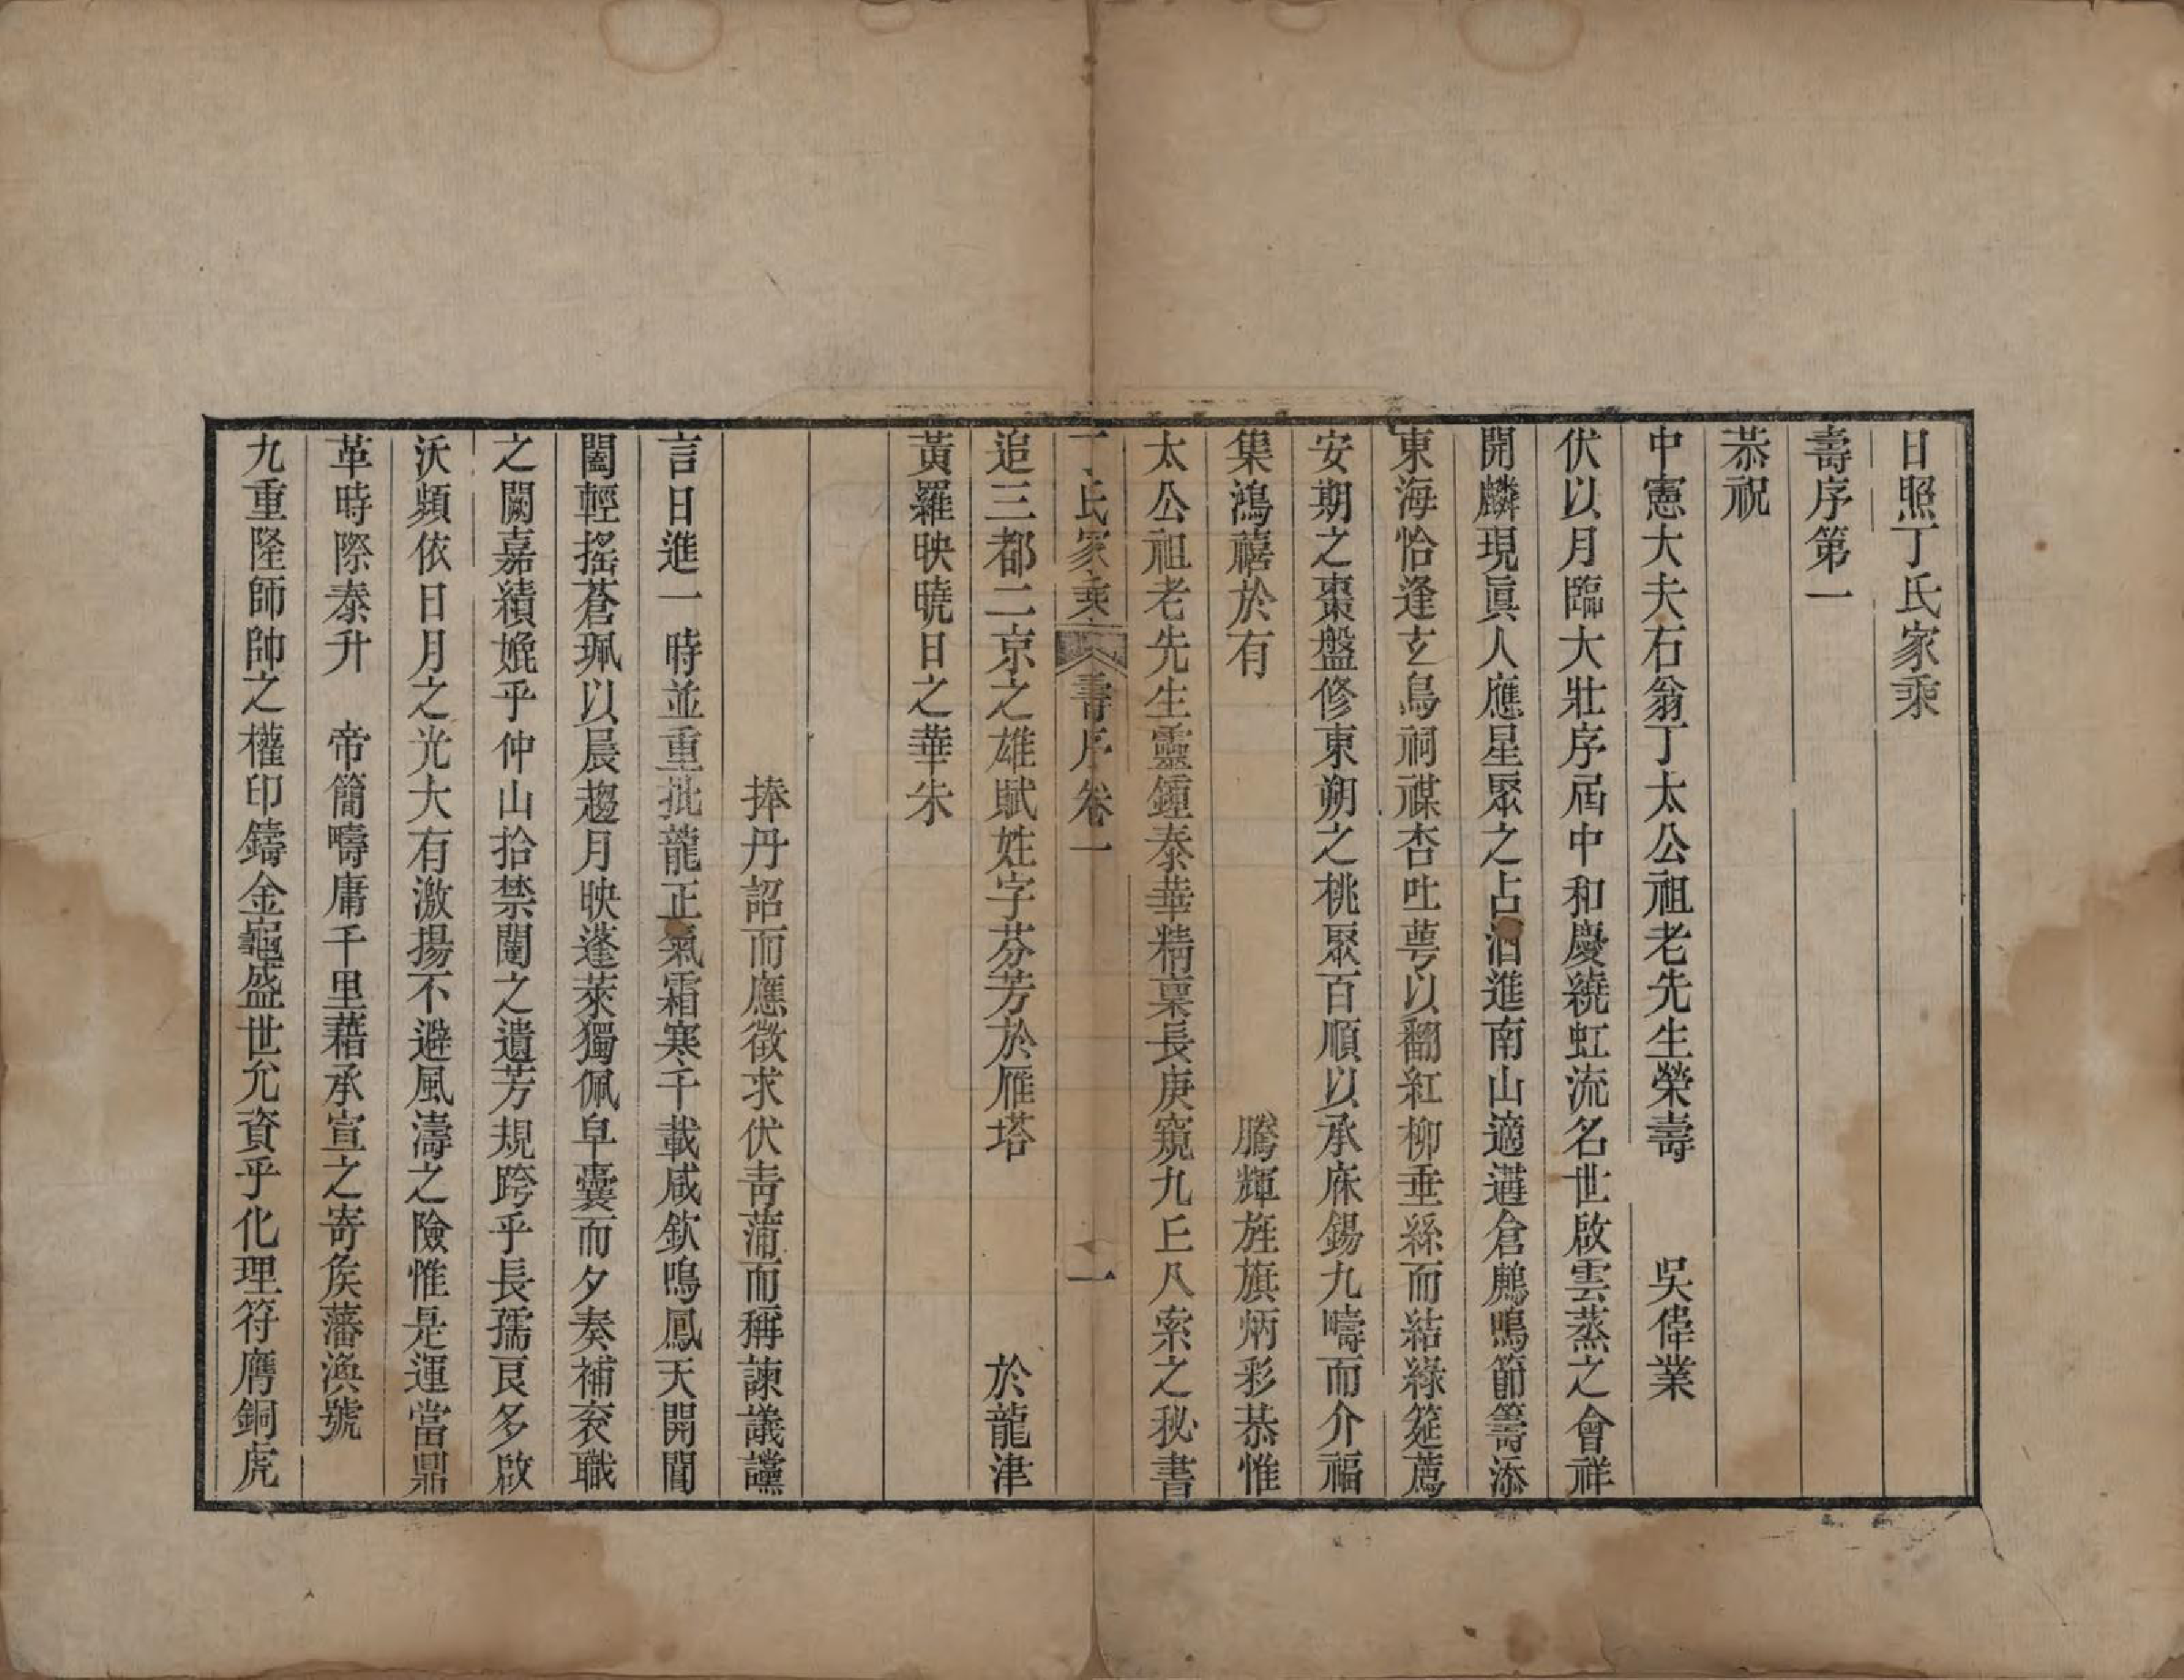 日照丁氏家乘
壽序第一
恭祝
中憲大夫石翁丁太公祖老先生榮壽　吳偉業
伏以月臨大壯序屆中和慶繞虹流名世啟雲蒸之會祥
開麟現眞人應星聚之占酒進南山適遘倉鷳鳴節籌添
東海恰逢玄鳥祠禖杏吐萼以翻紅柳垂絲而結綠筵薦
安期之棗盤修東朔之桃聚百順以承庥錫九疇而介福
集鴻禧於有　騰輝旌旗炳彩恭惟
太公祖老先生靈鍾泰華精稟長庚窺九丘八索之秘書
丁氏家乘　壽序卷一　一
追三都二京之雄賦姓字芬芳於雁塔　於龍津
黃羅映曉日之華朱
捧丹詔而應徵求伏青蒲而稱諫議讜
言日進一時並重批龍正氣霜寒千載咸欽鳴鳳天開閶
闔輕搖蒼珮以晨趨月映蓬萊獨佩皁囊而夕奏補衮職
之闕嘉績娩乎仲山拾禁闥之遺芳規跨乎長孺良多啟
沃頻依日月之光大有激揚不避風濤之險惟是運當鼎
革時際泰升　帝簡疇庸千里藉承宣之寄矦藩渙號
九重隆師帥之權印鑄金龜盛世允資乎化理符膺銅虎